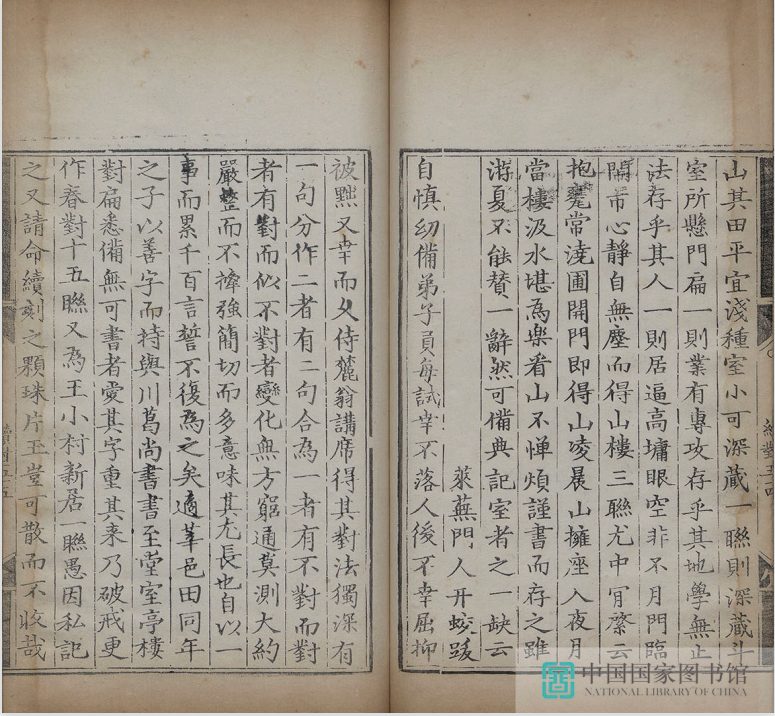 山其田平宜淺種室小可深藏一聯則深藏斗
室所懸門扁一則業有專攻存乎其地學無止
法存乎其人一則居逼高墉眼空非不月門臨
鬧市心靜自無塵而得山樓三聯尤中肎綮云
抱甕常澆圃開門即得山凌晨山擁座入夜月
當樓汲水堪為樂看山不憚煩謹書而存之雖
游夏不能贊一辭然可備典記室者之一缺云
萊蕪門人亓蛟跋
自慎幼備弟子員每試幸不落人後不幸屈抑
被黜又幸而久侍麓翁講席得其對法獨深有
一句分作二者有二句合為一者有不對而對
者有對而似不對者變化無方窮通莫測大約
嚴整而不擠強簡切而多意味其尤長也自以一
事而累千百言誓不復為之矣適莘邑田同年
之子以善字而持與川葛尚書書至堂室亭樓
對扁悉備無可書者愛其字重其來乃破戒更
作春對十五聯又為王小村新居一聯愚因私記
之又請命續刻之顆珠片玉豈可散而不收哉
續對五十四
續對五十五
中国国家图书馆
NATIONAL LIBRARY OF CHINA